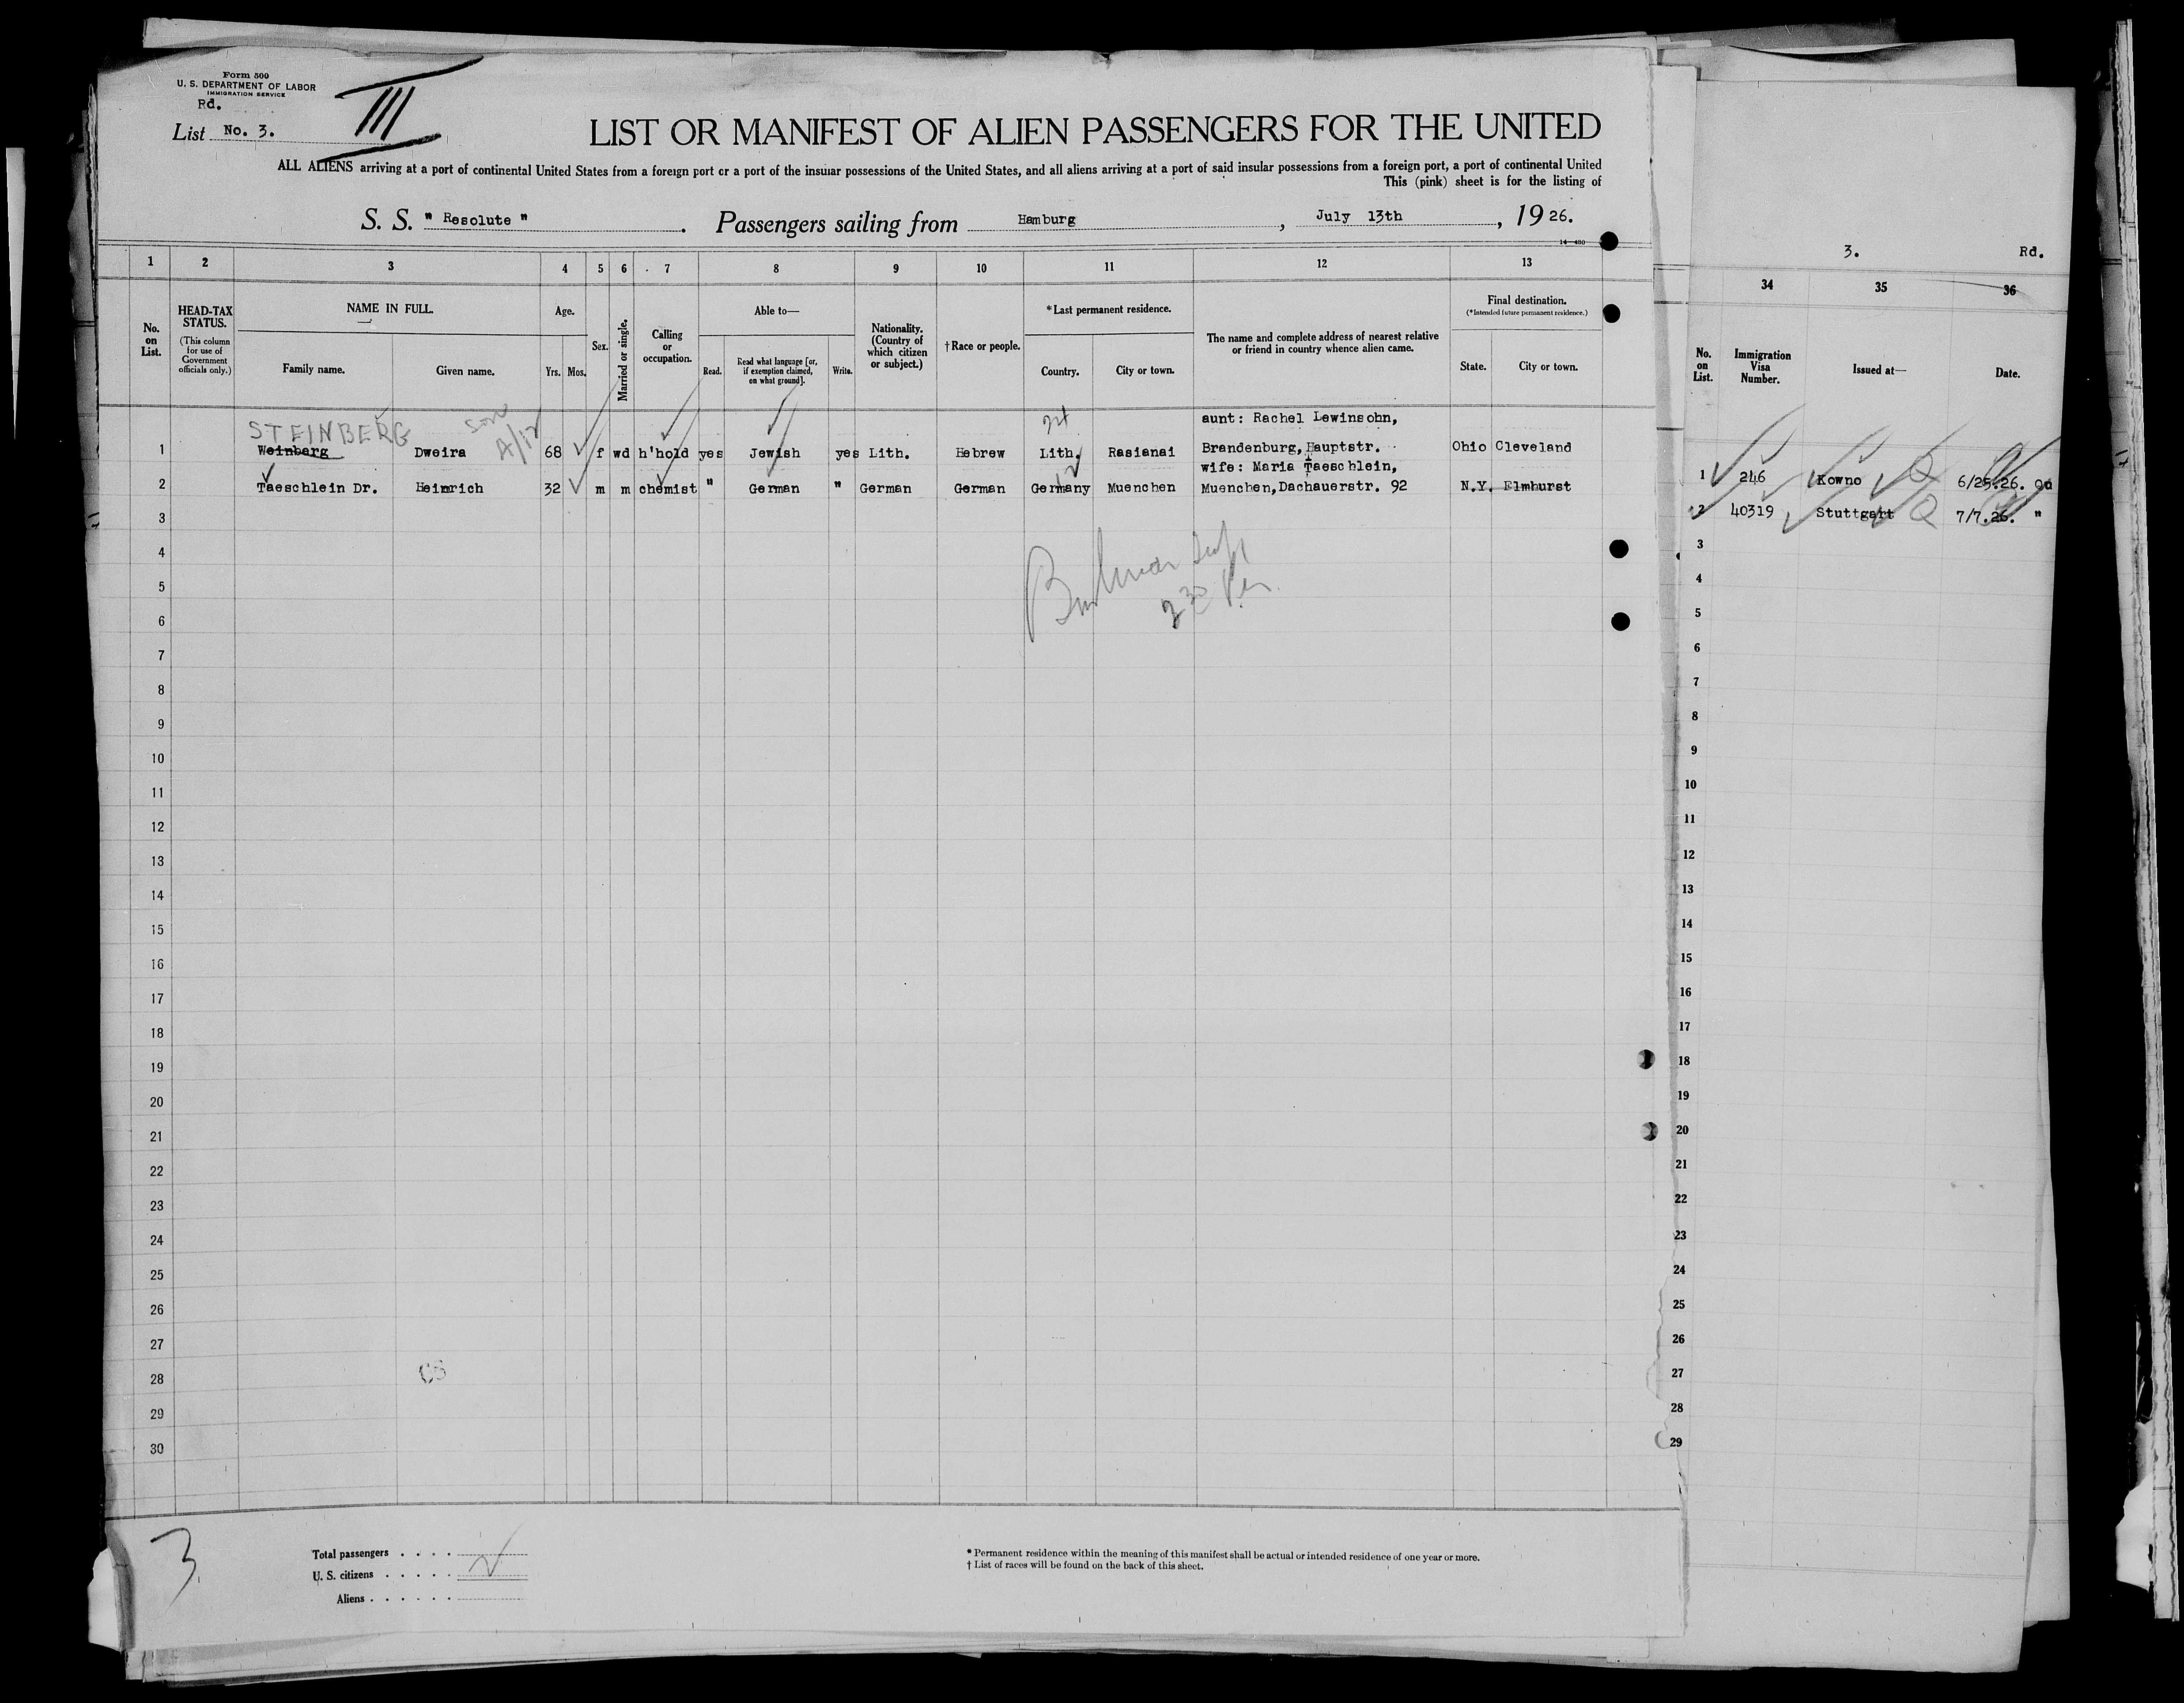 Form 500
U. S. DEPARTMENT OF LABOR
IMMIGRATION SERVICE
Rd.
List No. 3.
III
LIST OR MANIFEST OF ALIEN PASSENGERS FOR THE UNITED
ALL ALIENS arriving at a port of continental United States from a foreign port or a port of the insular possessions of the United States, and all aliens arriving at a port of said insular possessions from a foreign port, a port of continental United
This (pink) sheet is for the listing of
S. S. " Resolute " . Passengers sailing from Hamburg , July 13th , 19 26.
14—430
3. Rd.
1 2 3 4 5 6 7 8 9 10 11 12 13
34 35 36
No. on List.
HEAD-TAX STATUS.
(This column for use of Government officials only.)
NAME IN FULL.
Family name.
Given name.
Age.
Yrs. Mos.
Sex.
Married or single.
Calling or occupation.
Able to—
Read.
Read what language [or, if exemption claimed, on what ground].
Write.
Nationality. (Country of which citizen or subject.)
†Race or people.
*Last permanent residence.
Country.
City or town.
The name and complete address of nearest relative or friend in country whence alien came.
Final destination.
(*Intended future permanent residence.)
State.
City or town.
No. on List.
Immigration Visa Number.
Issued at—
Date.
STEINBERG son
aunt: Rachel Lewinsohn,
1 Weinberg Dweira 68 f wd h'hold yes Jewish yes Lith. Hebrew Lith. Rasianai Brandenburg,Hauptstr. Ohio Cleveland
wife: Maria Taeschlein,
2 Taeschlein Dr. Heinrich 32 m m chemist " German " German German Germany Muenchen Muenchen,Dachauerstr. 92 N.Y. Elmhurst
1 246 Kowno 6/25.26. Qu
2 40319 Stuttgart 7/7.26. "
3
4
5
6
7
8
9
10
11
12
13
14
15
16
17
18
19
20
21
22
23
24
25
26
27
28
29
30
3
4
5
6
7
8
9
10
11
12
13
14
15
16
17
18
19
20
21
22
23
24
25
26
27
28
29
3.
Total passengers . . . .
U. S. citizens . . . . .
Aliens . . . . . .
* Permanent residence within the meaning of this manifest shall be actual or intended residence of one year or more.
† List of races will be found on the back of this sheet.